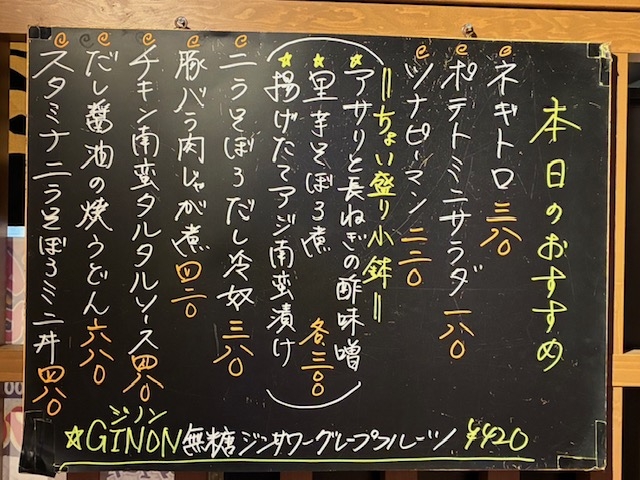 本日のおすすめ
ネギトロ 三八〇
ポテトミニサラダ 一八〇
ツナピーマン 二二〇
＝ちょい盛り小鉢＝
☆アサリと長ねぎの酢味噌
☆里芋そぼろ煮 各三〇〇
☆揚げたてアジ南蛮漬け
ニラそぼろだし冷奴 三八〇
豚バラ肉じゃが煮 四二〇
チキン南蛮タルタルソース 四八〇
だし醤油の焼うどん 六八〇
スタミナニラそぼろミニ丼 四八〇
ジノン
☆GINON無糖ジンサワーグレープフルーツ ¥420